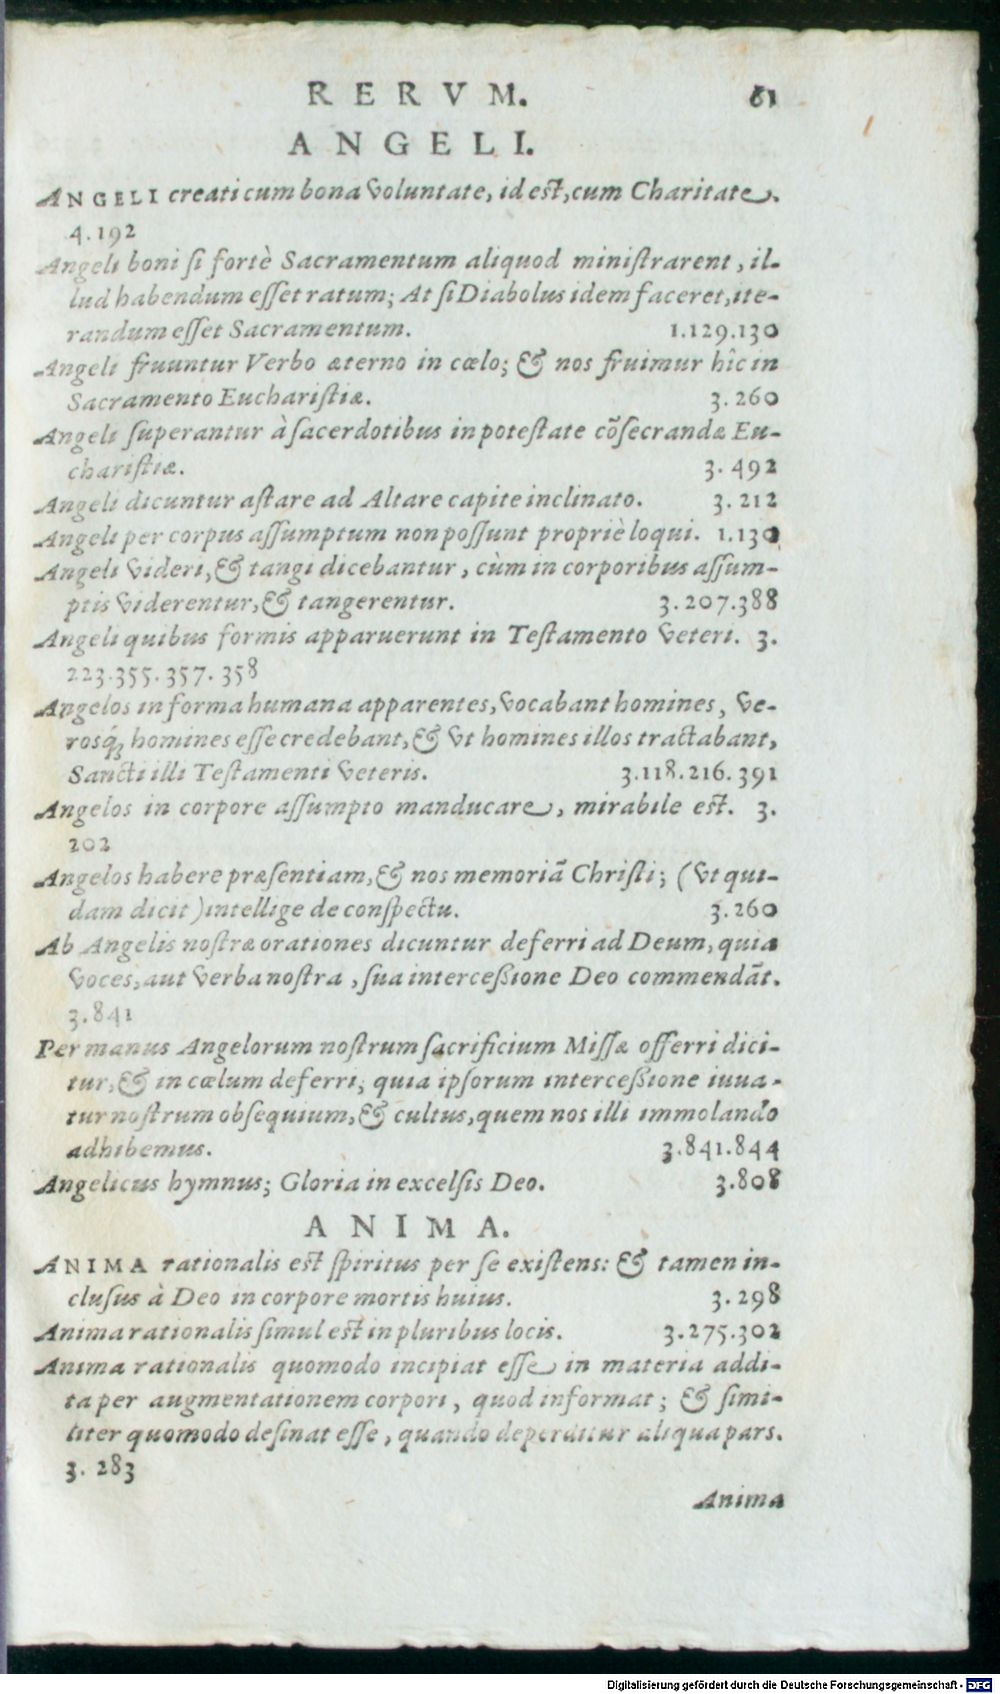 RERVM. 61
ANGELI.
ANGELI creati cum bona voluntate, id est, cum Charitate.
4.192
Angeli boni si fortè Sacramentum aliquod ministrarent, il-
lud habendum esset ratum; At si Diabolus idem faceret, ite-
randum esset Sacramentum. 1.129.130
Angeli fruuntur Verbo æterno in cœlo; & nos fruimur hîc in
Sacramento Eucharistiæ. 3.260
Angeli superantur à sacerdotibus in potestate cõsecrandæ Eu-
charistiæ. 3.492
Angeli dicuntur astare ad Altare capite inclinato. 3.212
Angeli per corpus assumptum non possunt propriè loqui. 1.130
Angeli videri, & tangi dicebantur, cùm in corporibus assum-
ptis viderentur, & tangerentur. 3.207.388
Angeli quibus formis apparuerunt in Testamento veteri. 3.
223.355.357.358
Angelos in forma humana apparentes, vocabant homines, ve-
rosq́ꝫ homines esse credebant, & vt homines illos tractabant,
Sancti illi Testamenti veteris. 3.118.216.391
Angelos in corpore assumpto manducare, mirabile est. 3.
202
Angelos habere præsentiam, & nos memoriã Christi; (vt qui-
dam dicit) intellige de conspectu. 3.260
Ab Angelis nostræ orationes dicuntur deferri ad Deum, quia
voces, aut verba nostra, sua intercessione Deo commendãt.
3.841
Per manus Angelorum nostrum sacrificium Missæ offerri dici-
tur, & in cœlum deferri; quia ipsorum intercessione iuua-
tur nostrum obsequium, & cultus, quem nos illi immolando
adhibemus. 3.841.844
Angelicus hymnus; Gloria in excelsis Deo. 3.808
ANIMA.
ANIMA rationalis est spiritus per se existens: & tamen in-
clusus à Deo in corpore mortis huius. 3.298
Anima rationalis simul est in pluribus locis. 3.275.302
Anima rationalis quomodo incipiat esse in materia addi-
ta per augmentationem corpori, quod informat; & simi-
liter quomodo desinat esse, quando deperditur aliqua pars.
3.283
Anima
Digitalisierung gefördert durch die Deutsche Forschungsgemeinschaft - DFG